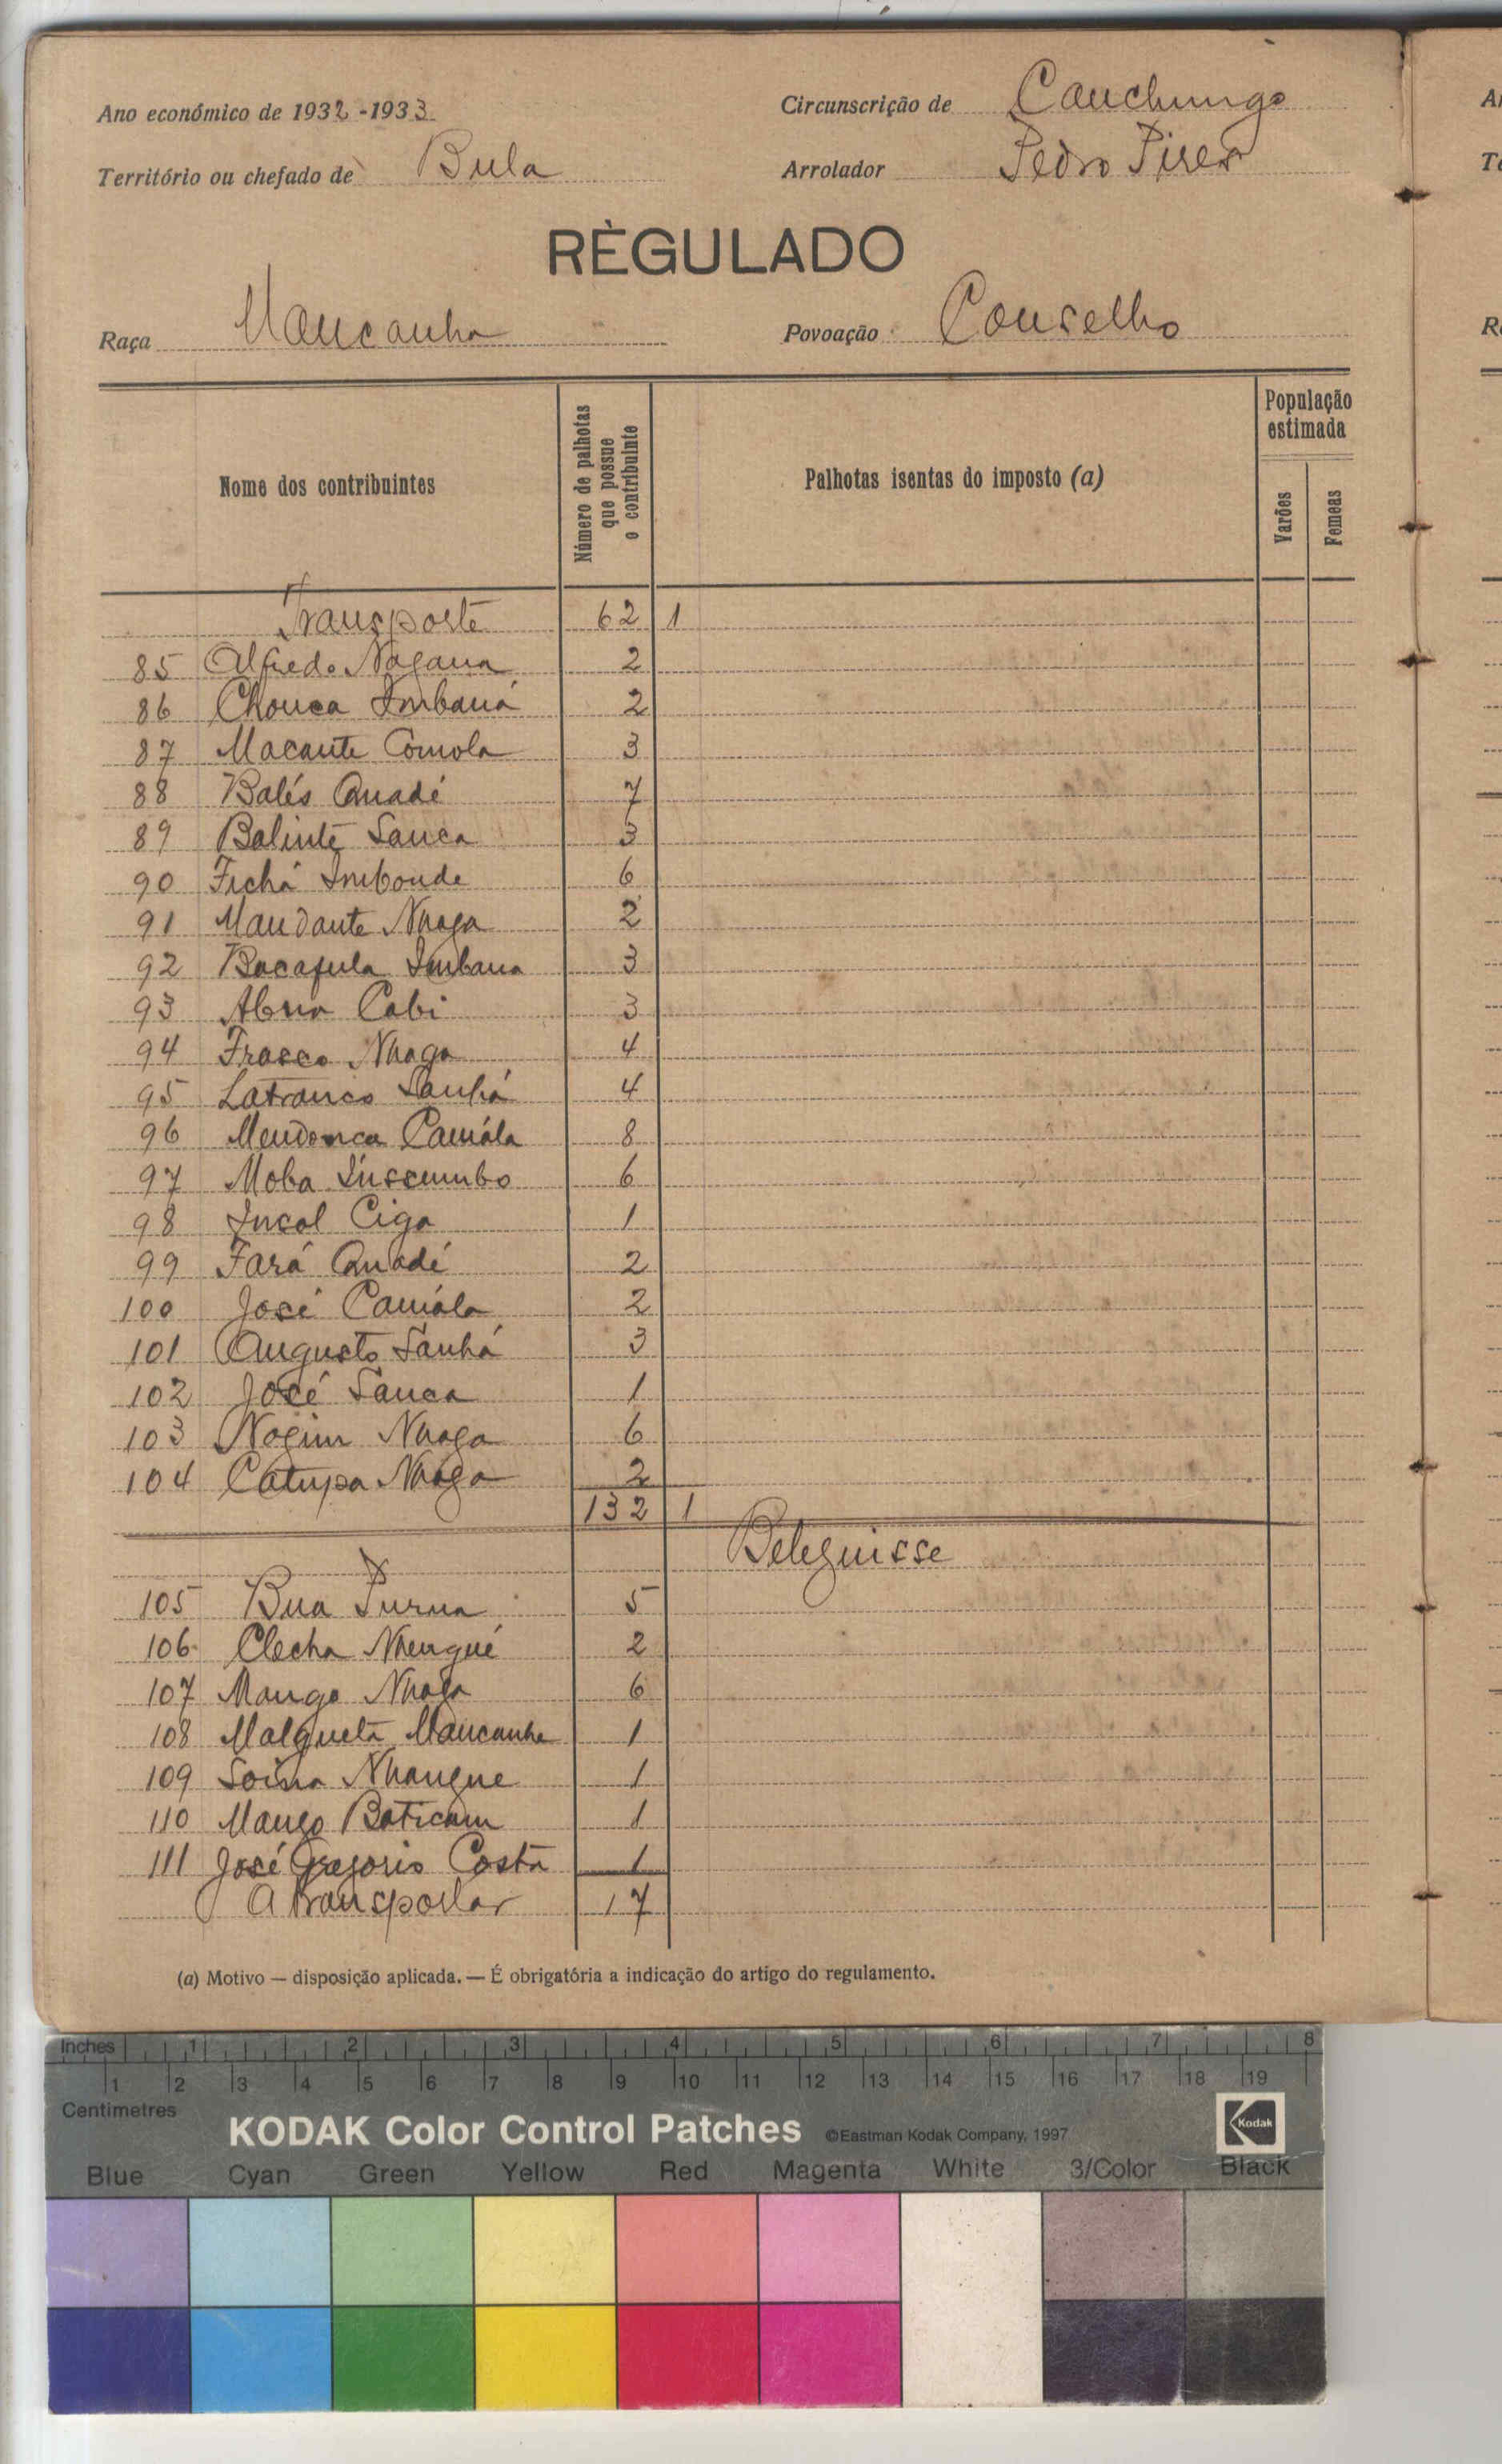 Ano económico de 1932-1933
Circunscrição de Canchungo
Território ou chefado de Bula
Arrolador Pedro Pires
RÈGULADO
Raça Mancanha
Povoação Conselho
Nome dos contribuintes
Número de palhotas que possue o contribuinte
Palhotas isentas do imposto (a)
População estimada
Varões
Femeas
Transporte 62 1
85 Alfredo Nagana 2
86 Chonca Imbaná 2
87 Macante Comola 3
88 Balés Quadé 7
89 Balinte Sanca 3
90 Fichá Imbonde 6
91 Mandante Nhaga 2
92 Bacafula Imbana 3
93 Abna Cabi 3
94 Frasco Nhaga 4
95 Latranco Sanhá 4
96 Mendonca Camála 8
97 Moba Insumbo 6
98 Incal Ciga 1
99 Fará Quadé 2
100 José Camála 2
101 Augusto Sanhá 3
102 José Sanca 1
103 Nagim Nhaga 6
104 Catupa Nhaga 2
132 1
Beleguisse
105 Bua Purna 5
106 Clecha Nhengué 2
107 Mango Nhaga 6
108 Malgueta Mancanha 1
109 Soina Nhangue 1
110 Mango Baticam 1
111 José Gregorio Costa 1
A transportar 17
(a) Motivo — disposição aplicada. — É obrigatória a indicação do artigo do regulamento.
Inches 1 2 3 4 5 6 7 8
1 2 3 4 5 6 7 8 9 10 11 12 13 14 15 16 17 18 19
Centimetres
KODAK Color Control Patches ©Eastman Kodak Company, 1997 Kodak
Blue Cyan Green Yellow Red Magenta White 3/Color Black